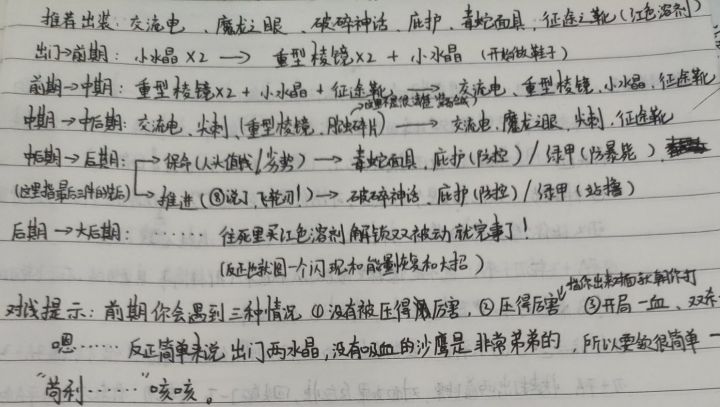 推荐出装：交流电、魔龙之眼、破碎神话、庇护、毒蛇面具、征途之靴（红色溶剂）
出门→前期：小水晶×2 → 重型棱镜×2 + 小水晶（开始做鞋子）
前期→中期：重型棱镜×2 + 小水晶 + 征途靴 → 交流电、重型棱镜、小水晶、征途靴
中期→中后期：交流电、尖刺（重型棱镜、碎片）→ 交流电、魔龙之眼、尖刺、征途靴
中后期→后期：→ 保命（人头值钱/劣势）→ 毒蛇面具、庇护（防控）/ 绿甲（防暴毙）、
（这里指最后三件的先后）→ 推进（⑧说了，飞轮刃！）→ 破碎神话、庇护（防控）/ 绿甲（站撸）
后期→大后期：…… 往死里买红色溶剂 解锁双被动 就完事了！
（反正也就图一个闪现和能量恢复和大招）
对线提示：前期你会遇到三种情况 ①没有被压得厉害，②压得厉害 ③开局一血、双杀
嗯…… 反正简单来说 出门两水晶，没有吸血的沙鹰是 非常弟弟的，所以要做很简单 一
“苟利……”咳咳。